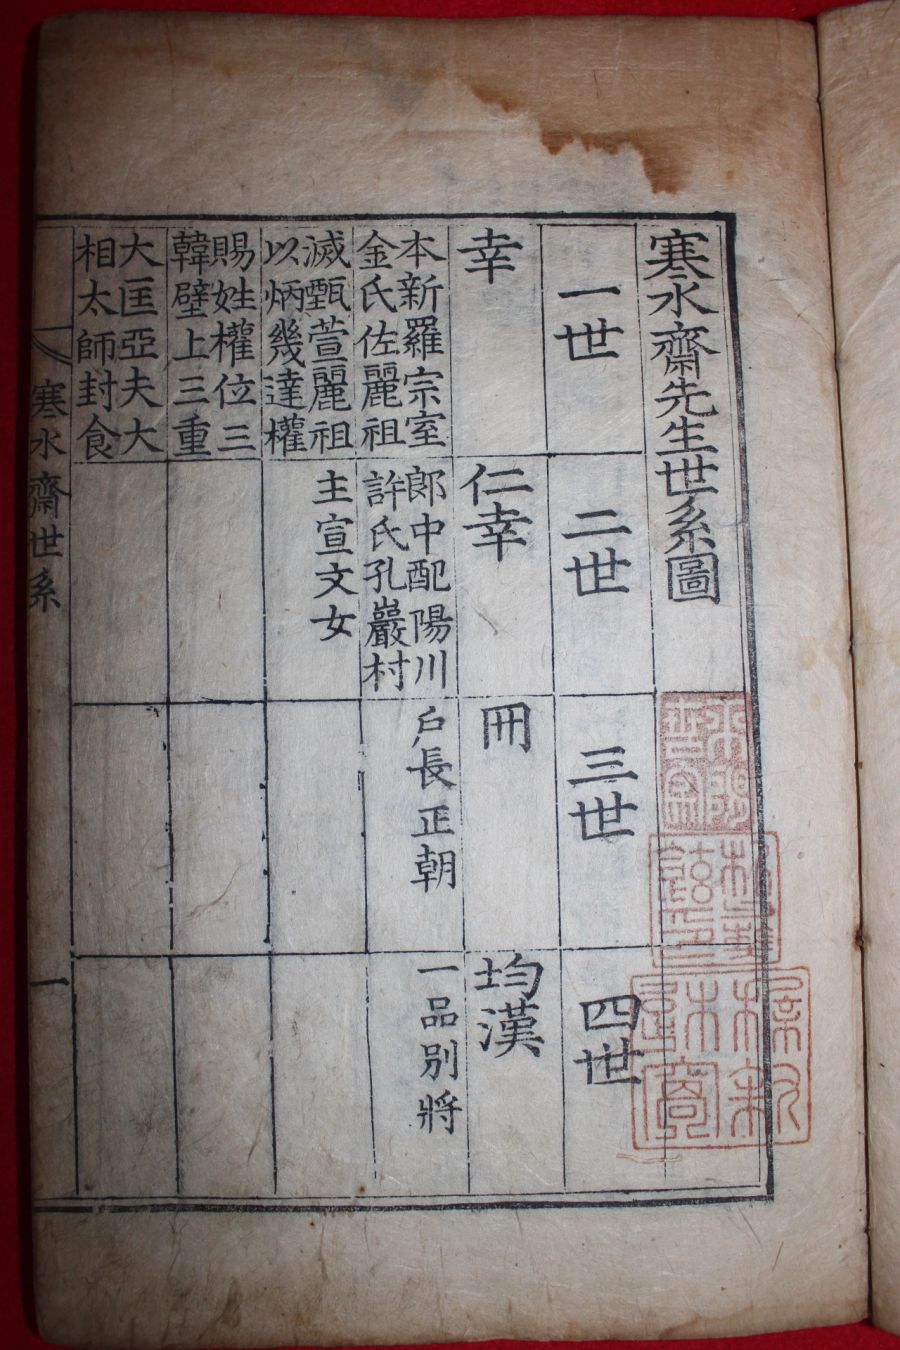 寒水齋先生世系圖
一世
幸
本新羅宗室
金氏佐麗祖
滅甄萱麗祖
以炳幾達權
賜姓權位三
韓壁上三重
大匡亞夫大
相太師封食
二世
仁幸
郞中配陽川
許氏孔巖村
主宣文女
三世
冊
戶長正朝
四世
均漢
一品別將
寒水齋世系
一